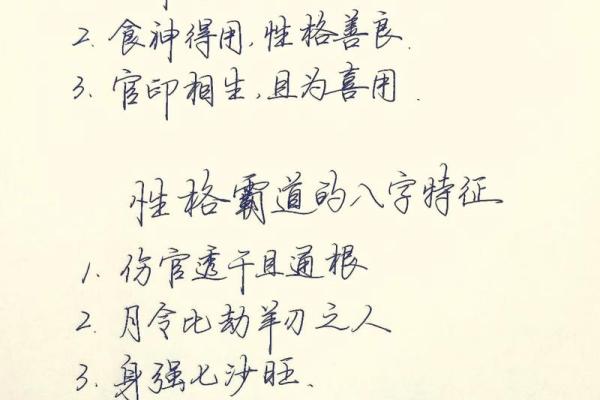 2. 食神得用,性格善良.
3. 官印相生,且为喜用.
性格霸道的八字特征
1. 伤官透干且通根
2. 月令比劫羊刃之人
3. 身强七沙旺.